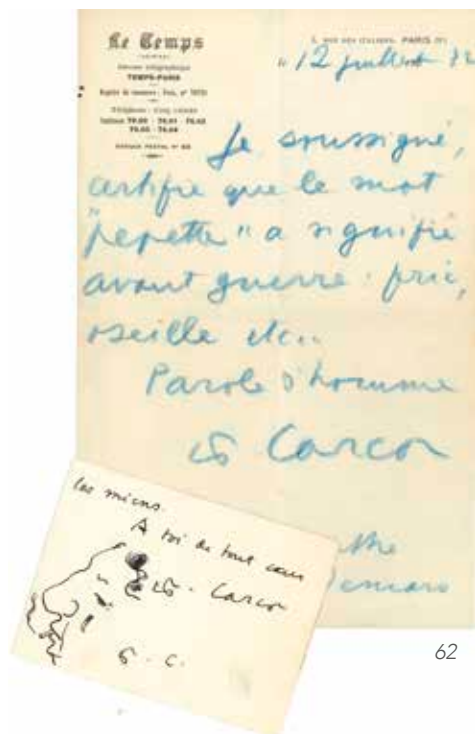 Le Temps
Adresse télégraphique
TEMPS-PARIS
PARIS
12 juillet
Je, soussigné,
certifie que le mot
"pepette" a signifié
avant guerre : fric,
oseille etc..
Parole d'homme
Carco
les miens.
A toi de tout cœur
Carco
F. C.
62